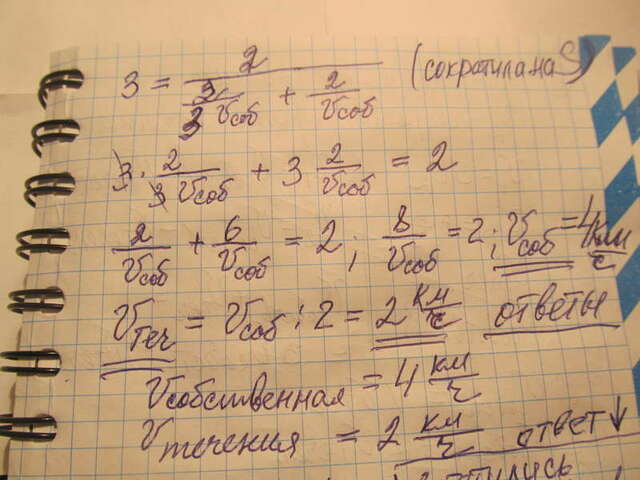 3 = 2 / (3/3 Vсоб + 2/Vсоб) (сократила на S)
3 · 2/(3 Vсоб) + 3 2/Vсоб = 2
2/Vсоб + 6/Vсоб = 2; 8/Vсоб = 2; Vсоб = 4 км/с
Vтеч = Vсоб : 2 = 2 км/с ответы
Vсобственная = 4 км/ч
Vтечения = 2 км/ч ответ ↓